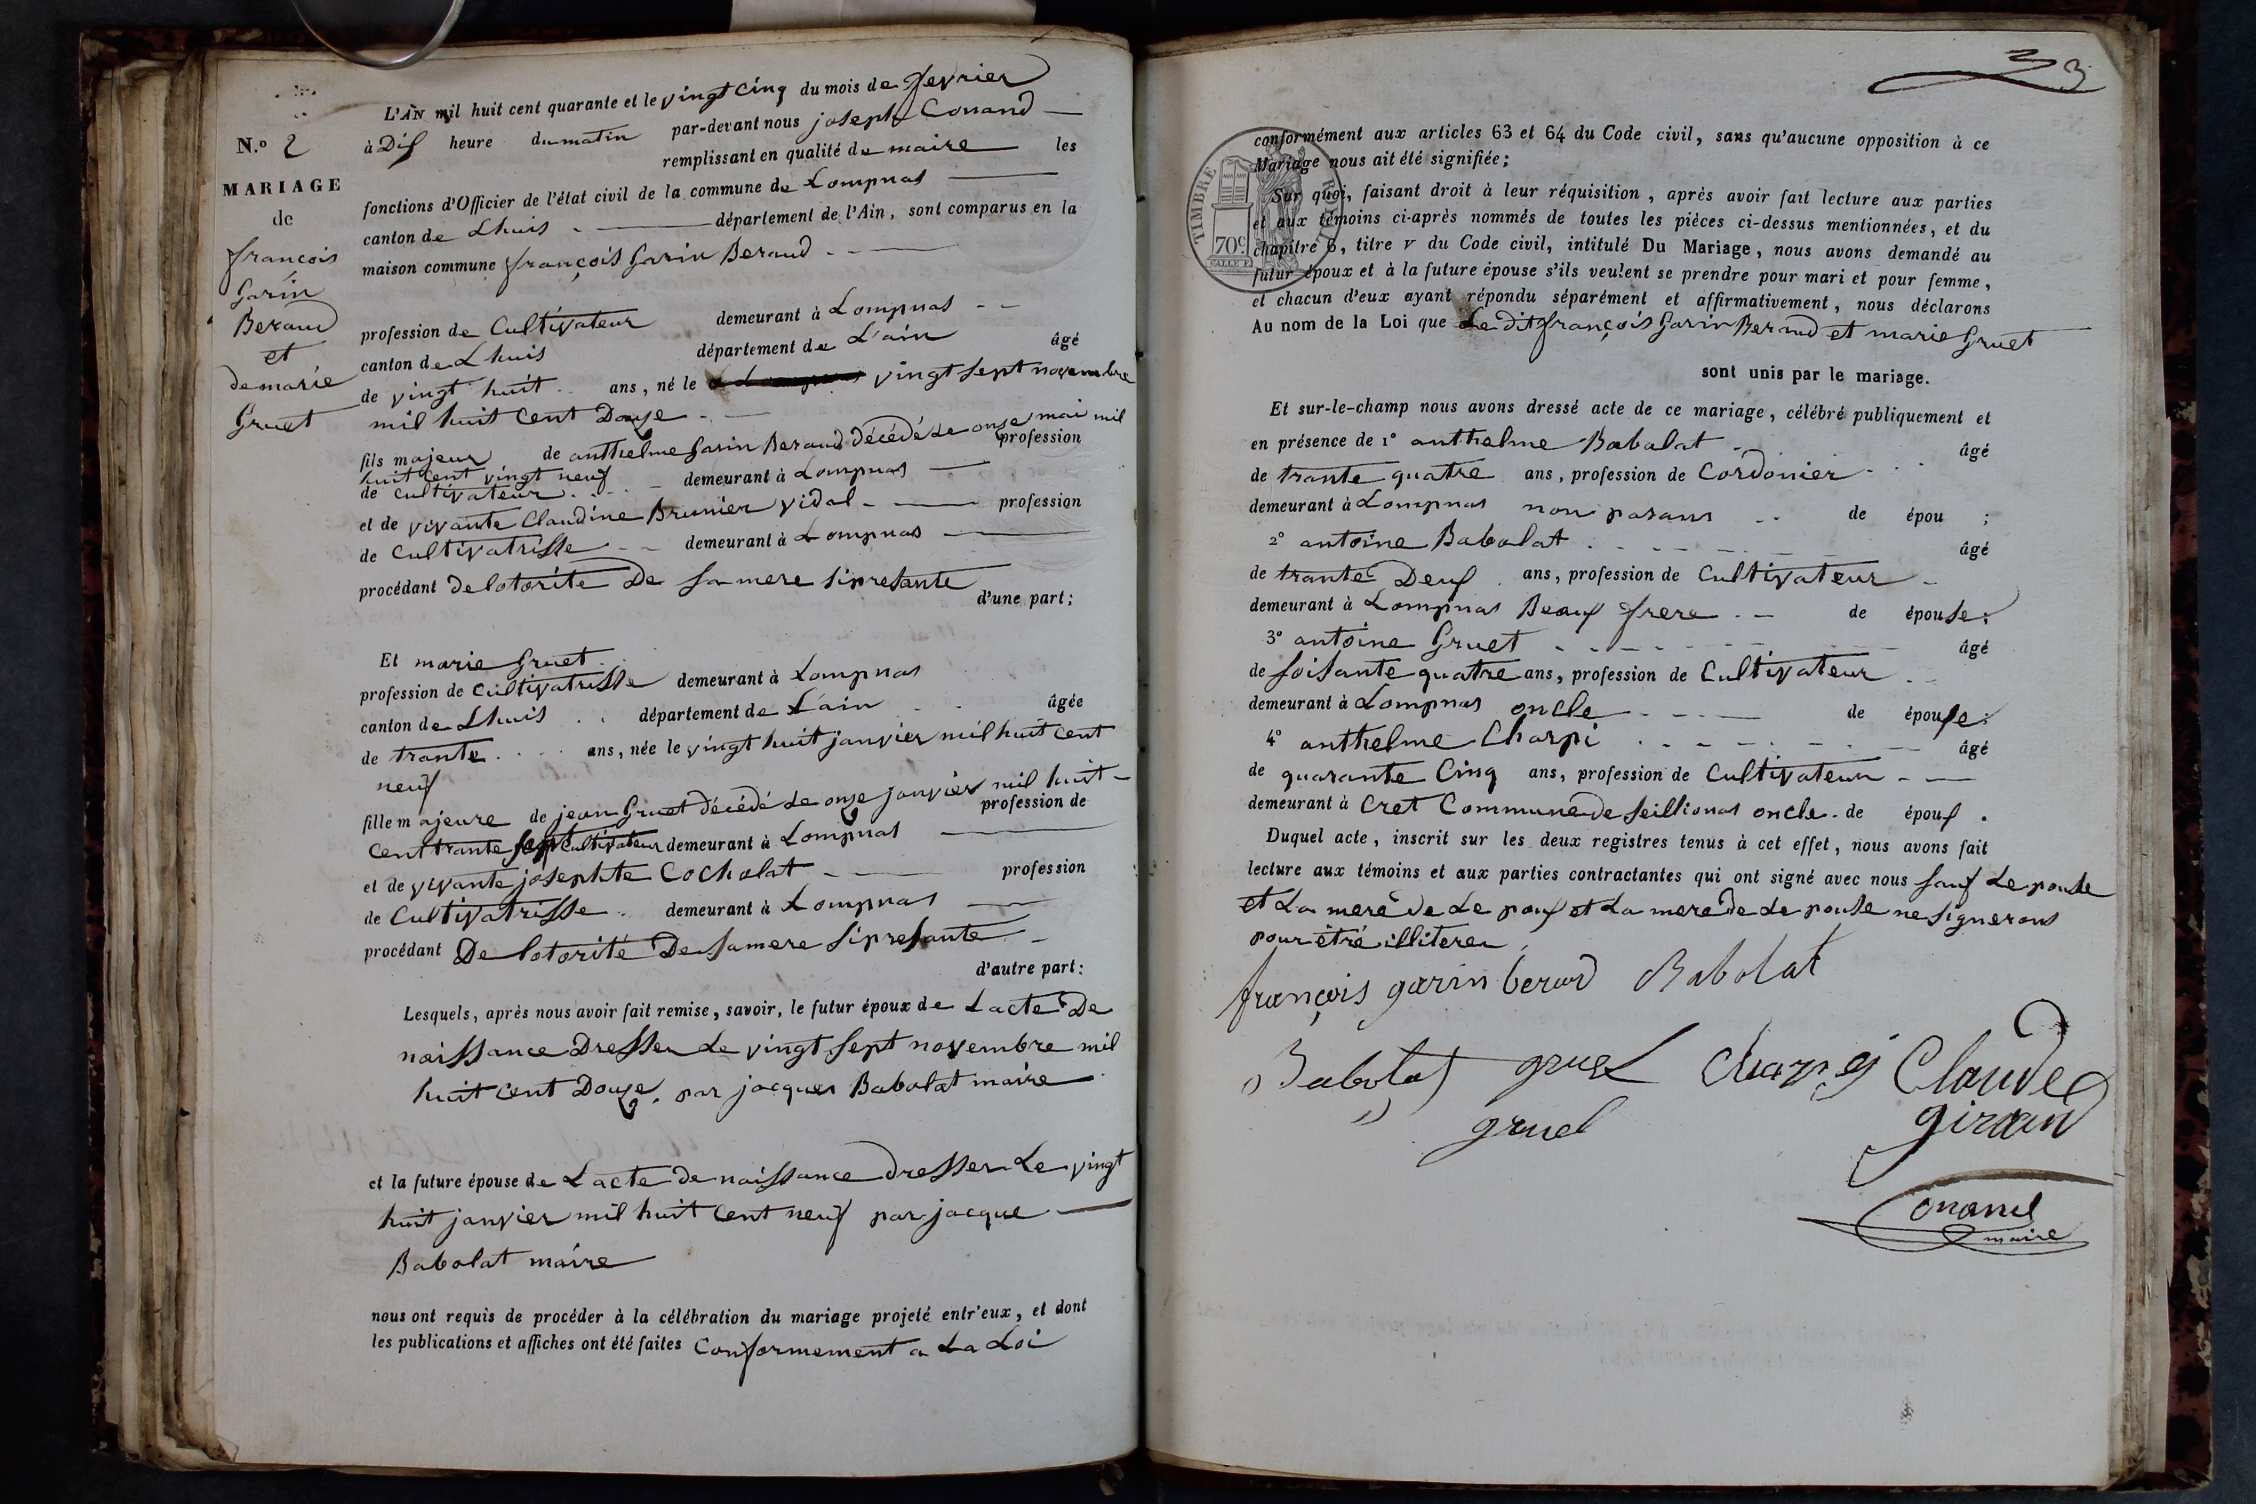 N.º 2
MARIAGE
de
françois
Garin
Beraud
et
de marie
Gruet
L'AN mil huit cent quarante et le vingt cinq du mois de fevrier
à Dis heure du matin par-devant nous joseph Conand
remplissant en qualité de maire les
fonctions d'Officier de l'état civil de la commune de Lompnas
canton de Lhuis département de l'Ain, sont comparus en la
maison commune françois Garin Beraud
profession de Cultivateur demeurant à Lompnas
canton de Lhuis département de L'ain âgé
de vingt huit ans, né le vingt sept novembre
mil huit cent Douze
fils majeur de anthelme Garin Beraud décédé Le onse mai mil
huit cent vingt neuf profession
de cultivateur demeurant à Lompnas
et de vivante Claudine Brunier vidal profession
de Cultivatrisse demeurant à Lompnas
procédant de lotorité De sa mere si presante
d'une part;
Et marie Gruet
profession de cultivatrisse demeurant à Lompnas
canton de Lhuis département de L'ain âgée
de trante ans, née le vingt huit janvier mil huit cent
neuf
fille majeure de jean Gruet décédé Le onze janvier mil huit
profession de
cent trante sept Cultivateur demeurant à Lompnas
et de vivante josephte Cocholat profession
de Cultivatrisse demeurant à Lompnas
procédant De lotorité De sa mere si presante
d'autre part:
Lesquels, après nous avoir fait remise, savoir, le futur époux de Lacte De
naissance Dresser Le vingt sept novembre mil
huit cent Douze, par jacques Babolat maire
et la future épouse de Lacte de naissance dresser Le vingt
huit janvier mil huit cent neuf par jacque
Babolat maire
nous ont requis de procéder à la célébration du mariage projeté entr'eux, et dont
les publications et affiches ont été faites Conformement a La Loi
3
TIMBRE ROYAL
70c
conformément aux articles 63 et 64 du Code civil, sans qu'aucune opposition à ce
Mariage nous ait été signifiée;
Sur quoi, faisant droit à leur réquisition, après avoir fait lecture aux parties
et aux témoins ci-après nommés de toutes les pièces ci-dessus mentionnées, et du
chapitre 6, titre v du Code civil, intitulé Du Mariage, nous avons demandé au
futur époux et à la future épouse s'ils veulent se prendre pour mari et pour femme,
et chacun d'eux ayant répondu séparément et affirmativement, nous déclarons
Au nom de la Loi que Le dit françois Garin Beraud et marie Gruet
sont unis par le mariage.
Et sur-le-champ nous avons dressé acte de ce mariage, célébré publiquement et
en présence de 1º anthelme Babolat âgé
de trante quatre ans, profession de Cordonier
demeurant à Lompnas non parans de épou ;
2º antoine Babolat âgé
de trante Deux ans, profession de Cultivateur
demeurant à Lompnas Beaux frere de épouse:
3º antoine Gruet âgé
de soisante quatre ans, profession de Cultivateur
demeurant à Lompnas oncle de épouse:
4º anthelme Charpi âgé
de quarante Cinq ans, profession de Cultivateur
demeurant à Cret Commune de seillionas oncle de époux.
Duquel acte, inscrit sur les deux registres tenus à cet effet, nous avons fait
lecture aux témoins et aux parties contractantes qui ont signé avec nous sauf Le pouse
et La mere de Le poux et La mere de Le pouse ne signerons
pour être illiteree
françois garin berod Babolat
Babolat gruet Charpij Claude
gruel girard
Conand
maire